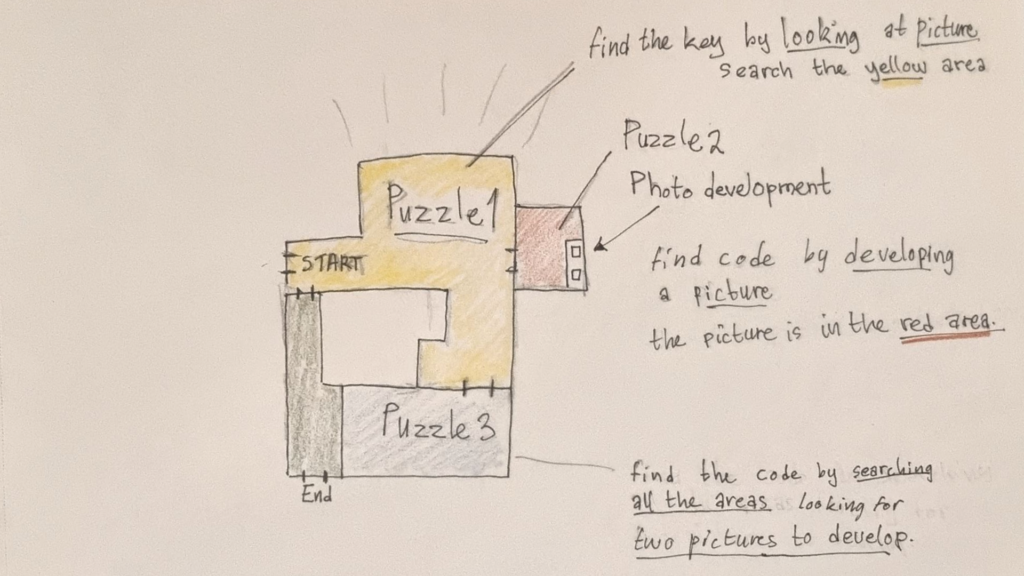 find the key by looking at picture
search the yellow area
Puzzle 2
Photo development
Puzzle 1
START
find code by developing
a picture
the picture is in the red area.
Puzzle 3
End
find the code by searching
all the areas looking for
two pictures to develop.